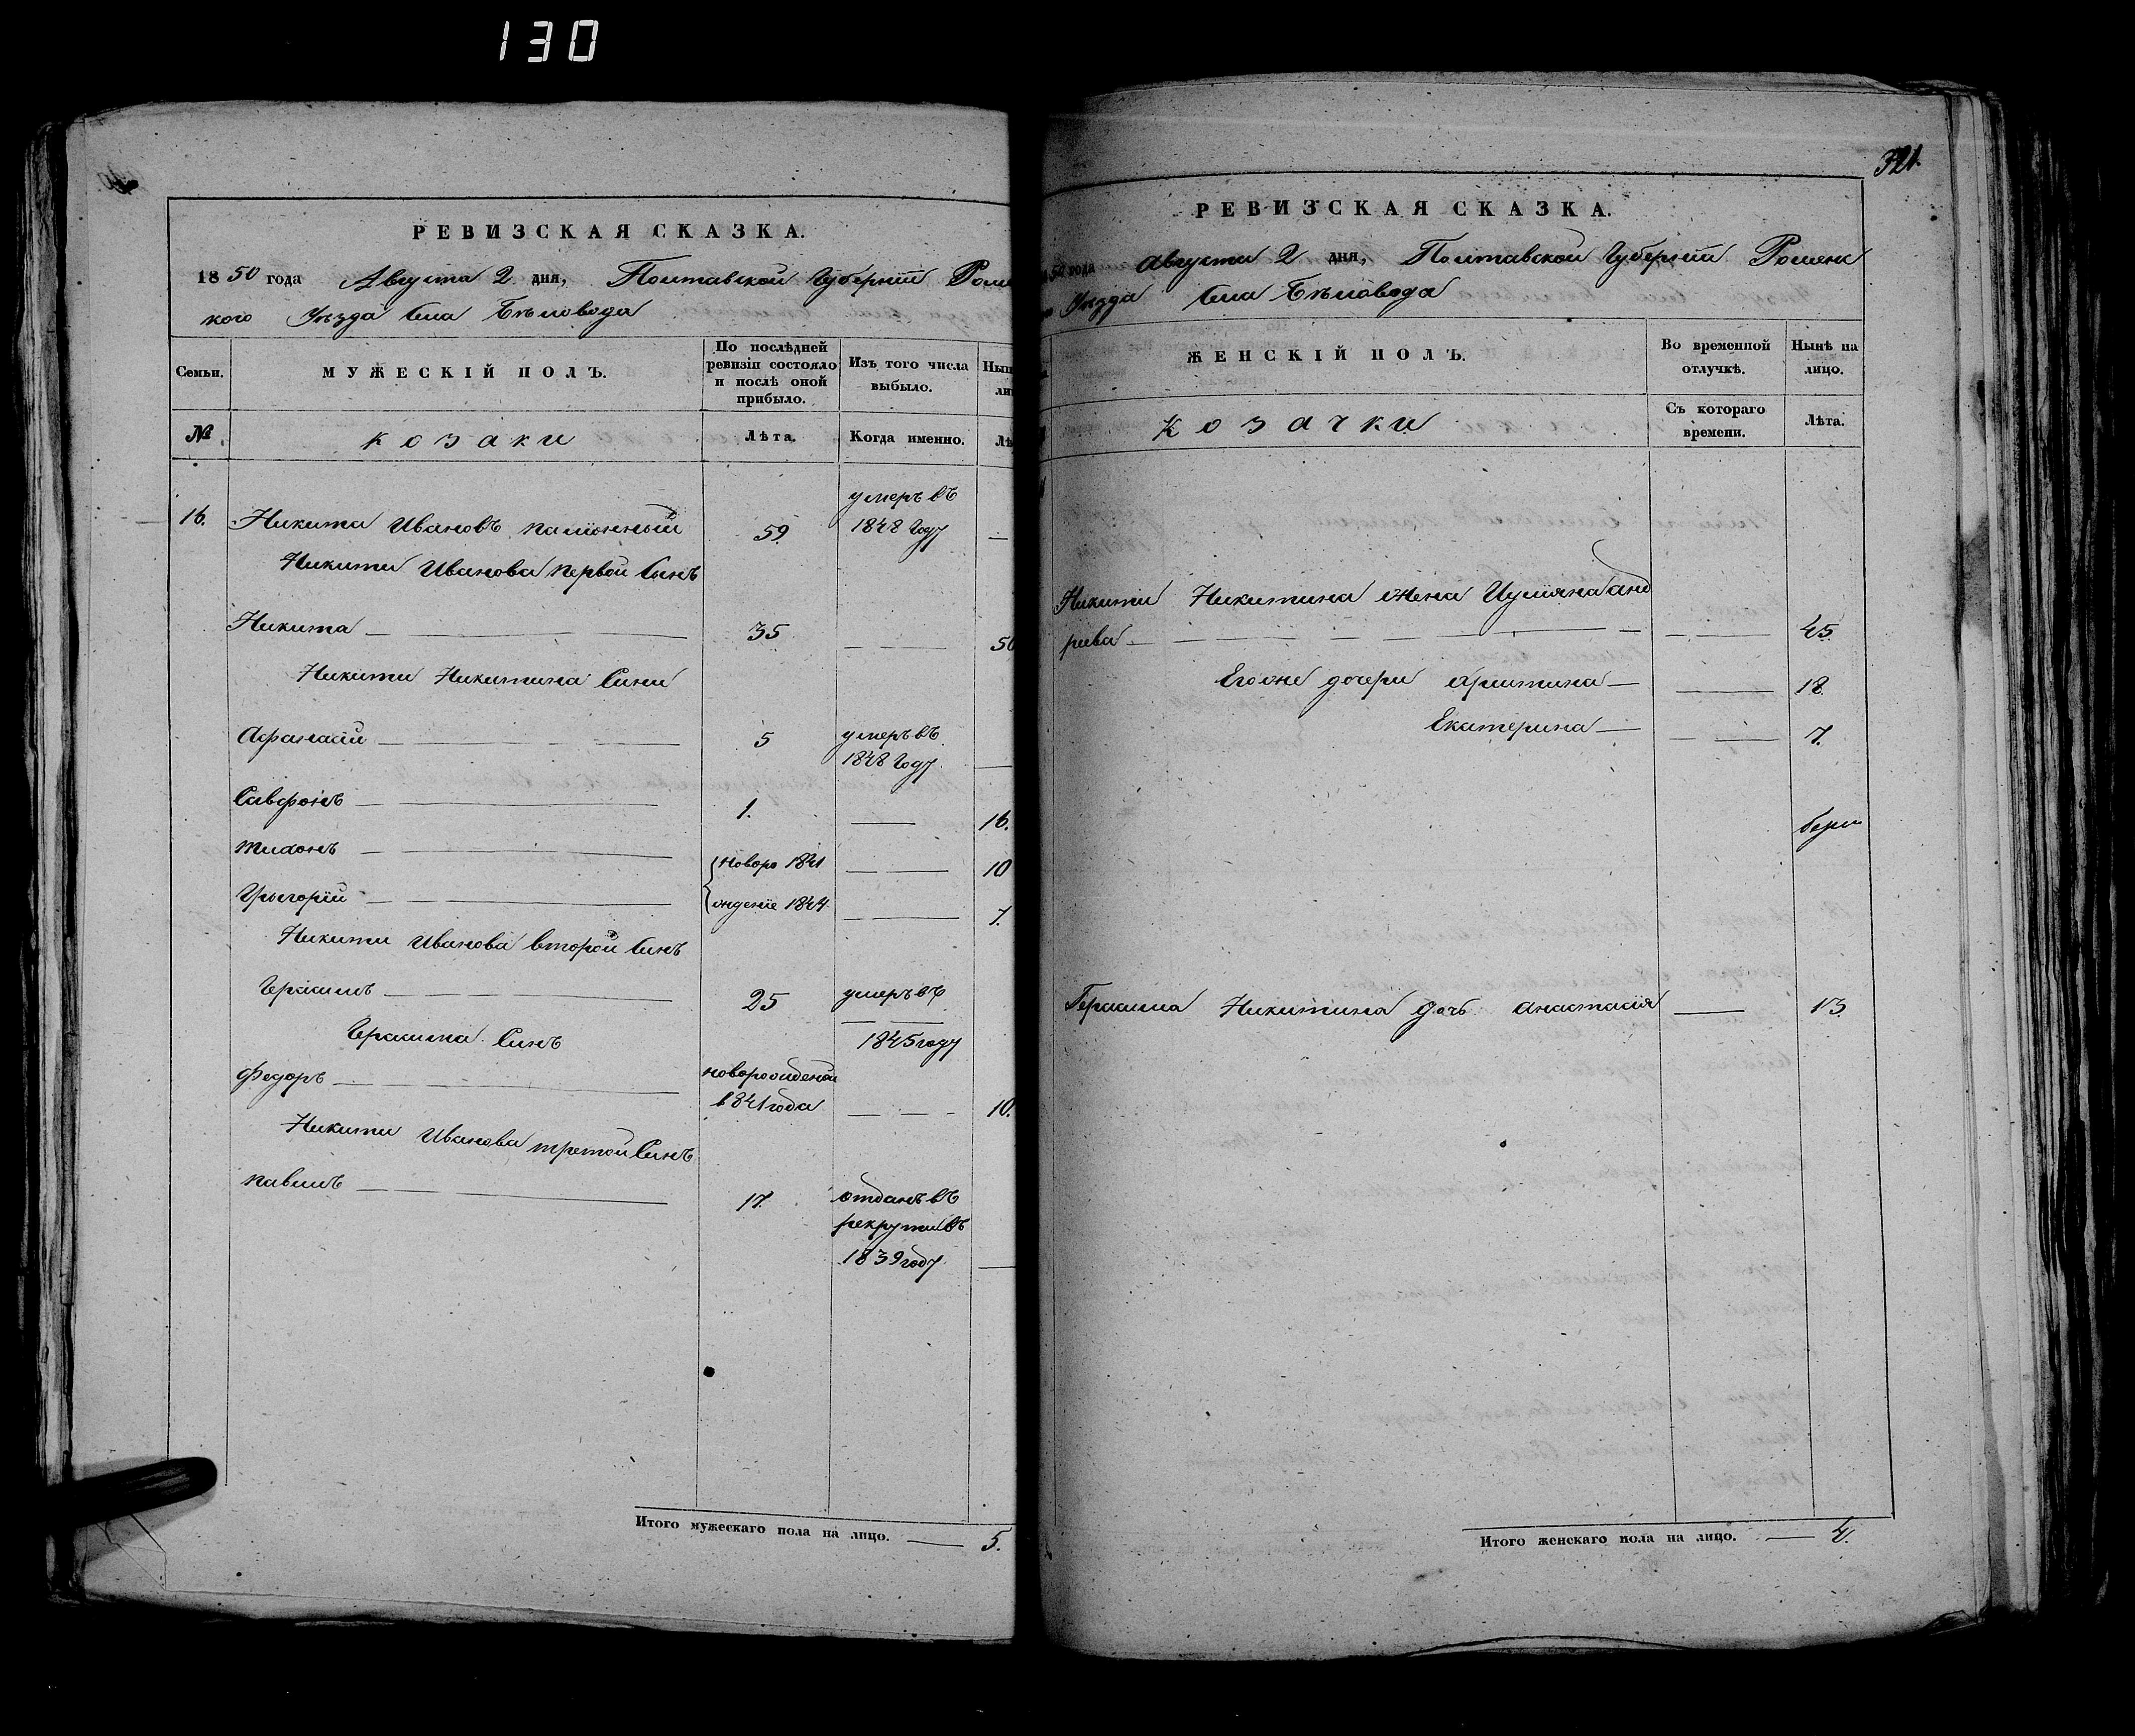 130
РЕВИЗСКАЯ СКАЗКА.
1850 года Августа 2 дня, Полтавской Губернïи Роме
кого Уѣзда Села Бѣловода
Семьи.
МУЖЕСКІЙ ПОЛЪ.
По послѣдней ревизіи состояло и послѣ оной прибыло.
Изъ того числа выбыло.
№
козаки
Лѣта.
Когда именно.
умеръ въ
16. Никита Ивановъ 59 1848 году
Никити Иванова первой Синъ
Никита 35 50
Никити Никитина Сини
Афанасïй 5 умеръ въ
1848 году
Савфонъ 1. 16.
Тихонъ новоро 1841 10
Григорïй жденïе 1844 7.
Никити Иванова второй Синъ
Герасимъ 25 умеръ въ
Герасима Синъ 1845 году
Федоръ новорожденой
1841 года 10.
Никити Иванова третой Синъ
17. отданъ въ
рекрути въ
1839 году
Итого мужескаго пола на лицо. 5.
321
РЕВИЗСКАЯ СКАЗКА.
50 года Августа 2 дня, Полтавской Губернïи Роменс
Уѣзда Села Бѣловода
ЖЕНСКІЙ ПОЛЪ.
Во временной отлучкѣ.
Нынѣ на лицо.
козачки
Съ котораго времени.
Лѣта.
Никити Никитина жена Иулïяна Анд
реева 45.
Егоже дочери 18
Екатерина 7.
Герасима Никитина дочь Анастасïя 13
Итого женскаго пола на лицо. 4.